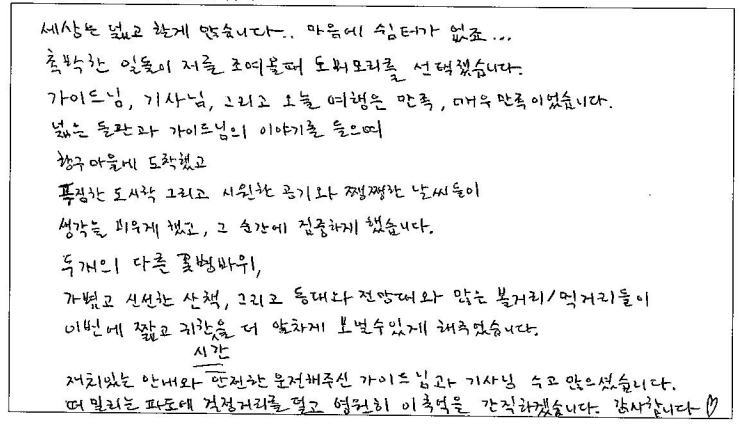 세상은 넓고 할게 많습니다.. 마음에 쉼터가 없죠...
촉박한 일들이 저를 조여올때 도삐모리를 선택했습니다.
가이드님, 기사님, 그리고 오늘 여행은 만족, 매우 만족이었습니다.
넓은 들판과 가이드님의 이야기를 들으며
항구마을에 도착했고
푸짐한 도시락 그리고 시원한 공기와 쨍쨍한 날씨들이
생각을 비우게 했고, 그 순간에 집중하게 했습니다.
두개의 다른 꽃병바위,
가볍고 신선한 산책, 그리고 등대와 전망대와 많은 볼거리/먹거리들이
이번에 짧고 귀찮을 더 알차게 보낼수있게 해주었습니다.
시간
재치있는 안내와 안전한 운전해주신 가이드님과 기사님 수고 많으셨습니다.
떠밀리는 파도에 걱정거리를 덜고 영원히 이 추억을 간직하겠습니다. 감사합니다♡